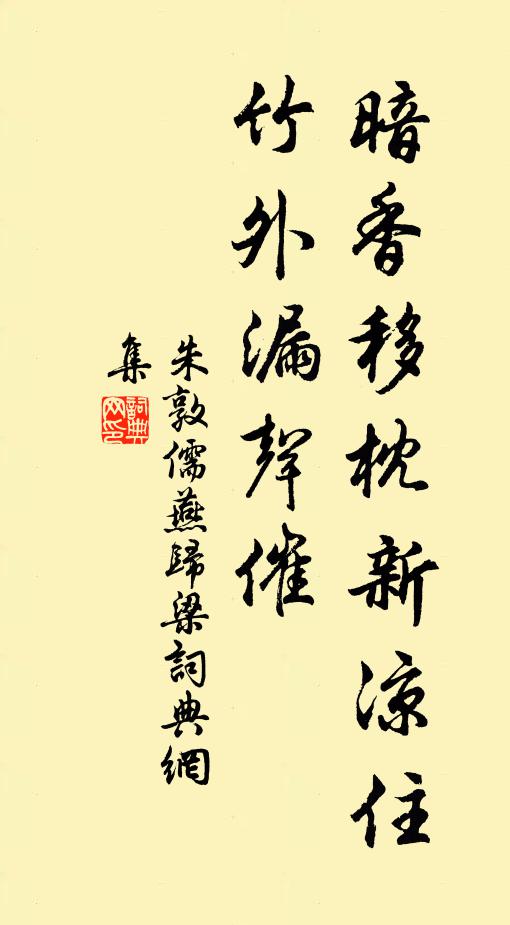 暗香移枕新涼住
竹外漏聲催
朱敦儒燕歸梁詞典網
集
詞典
网印